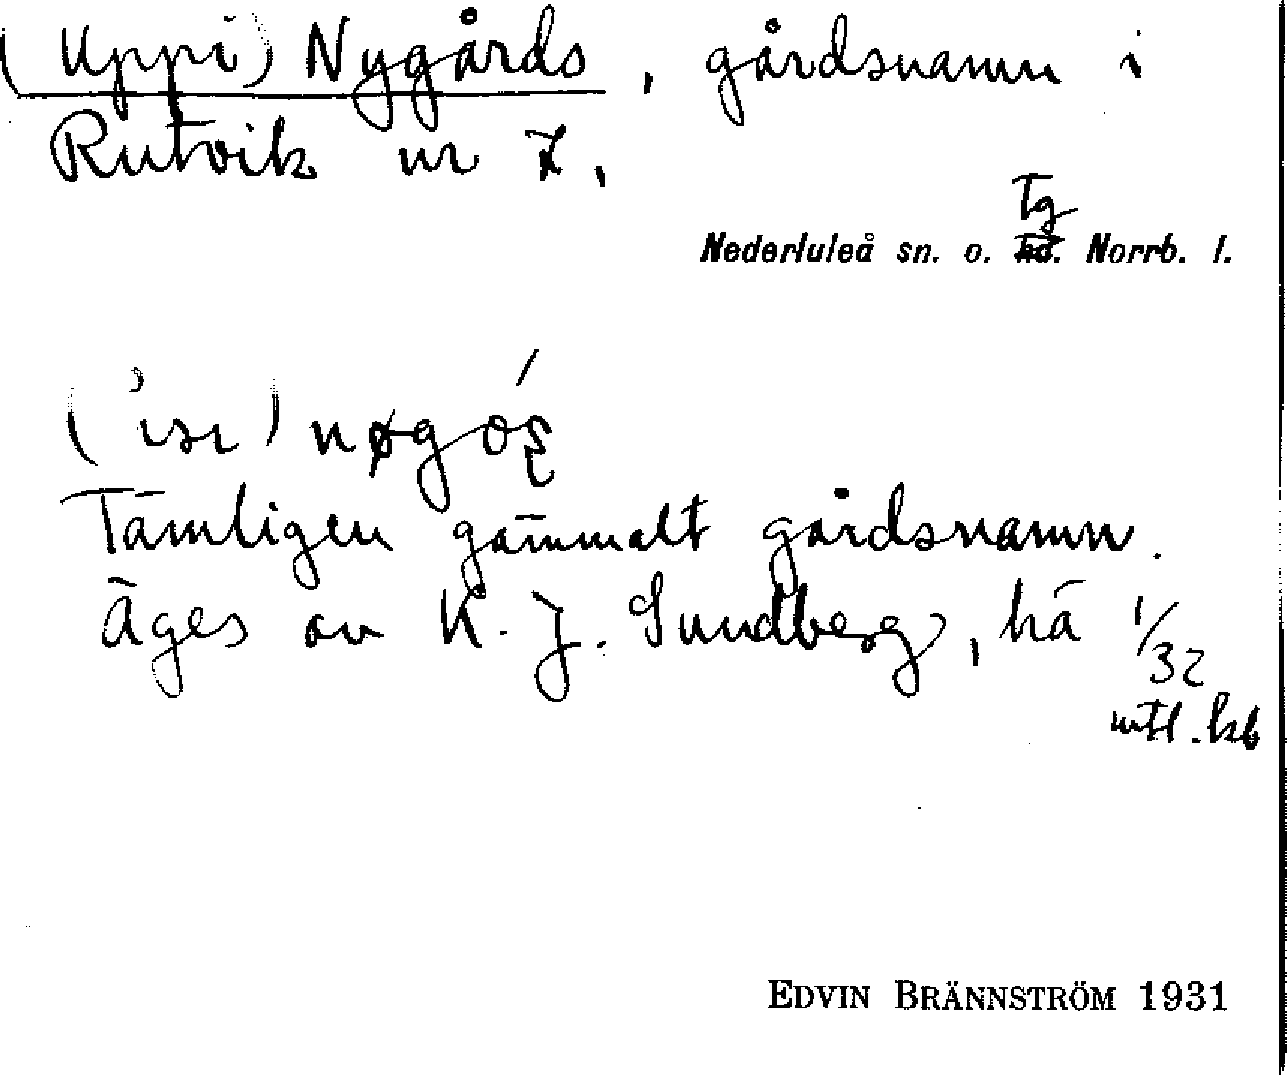 (Uppi) Nygårds, gårdsnamn i
Rutvik nr 7.
Tg
Nederluleå sn. o. hd. Norrb. l.
nøgós
Tämligen gammalt gårdsnamn.
Äges av K. J. Sundberg, hä 1/32
mtl. kb
EDVIN BRÄNNSTRÖM 1931